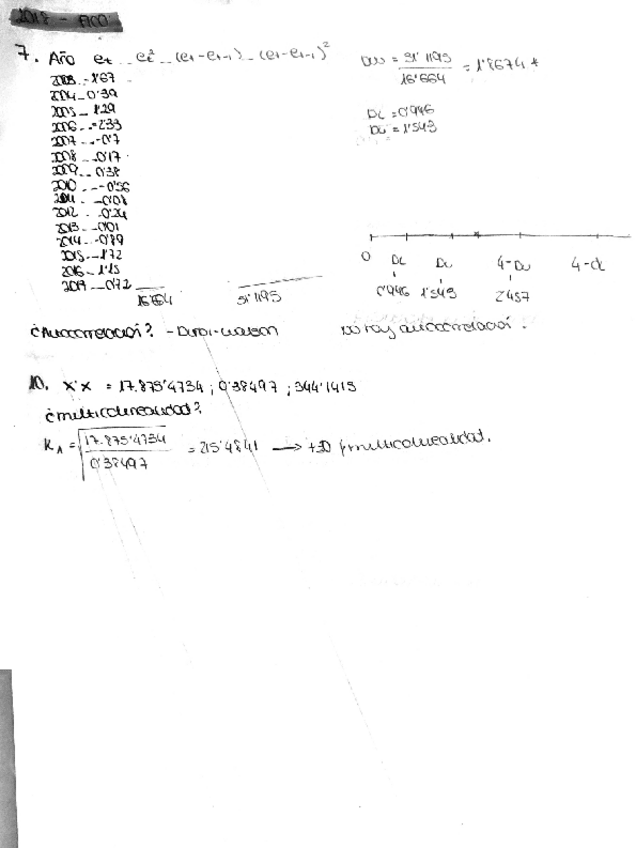 2018 - ACO
7. Año et et² (et-et-1) (et-et-1)²
2003 -1'67
2004 - 0'39
2005 - 1'29
2006 - -2'33
2007 - -0'7
2008 - 0'17
2009 - 0'38
2010 - -0'56
2011 - -0'08
2012 - 0'24
2013 - 0'01
2014 - -0'89
2015 - -1'72
2016 - 1'15
2017 - 0'72
16'664 31'1195
DW = 31'1195 / 16'664 = 1'8674 *
DL = 0'946
Du = 1'543
0 DL Du 4-Du 4-dL
0'946 1'543 2'457
¿Autocorrelació? - Durbi-Watson No hay autocorrelació.
10. X'X = 17.875'4734 ; 0'38497 ; 344'1413
¿multicolinealidat?
KA = √ 17.875'4734 / 0'38497 = 215'4841 → +30 multicolinealidat.